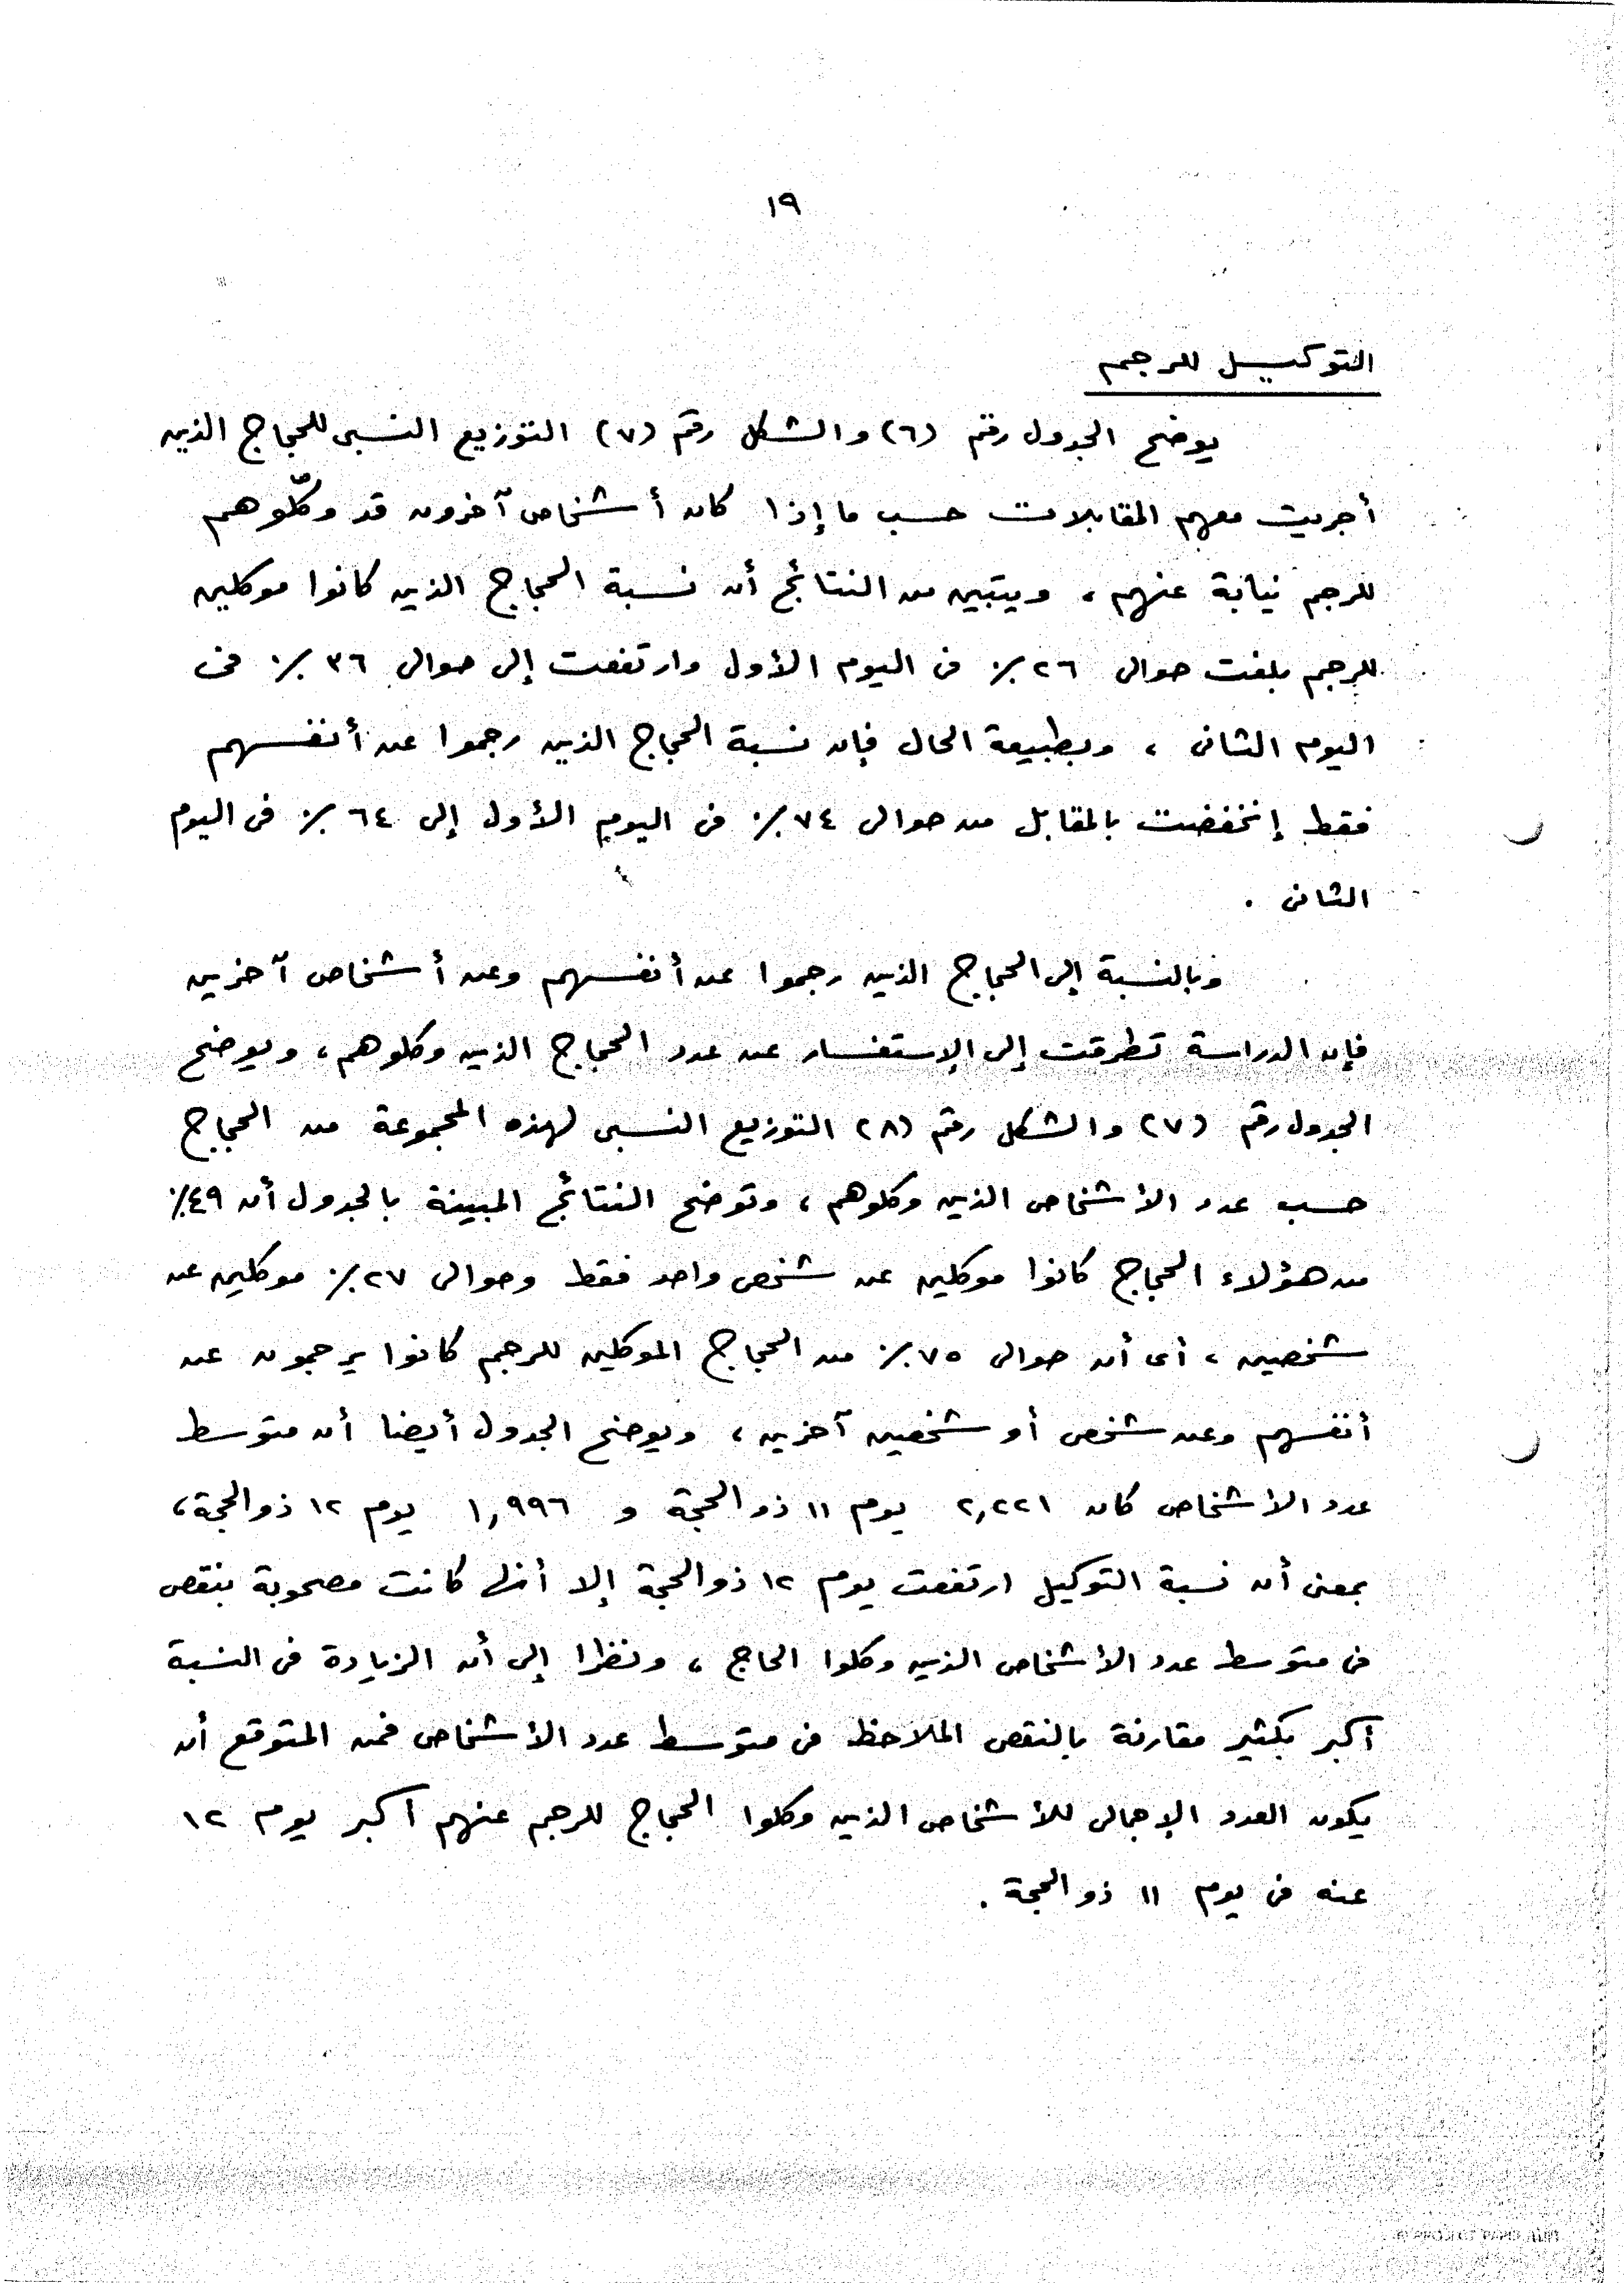 ١٩
التوكيل للرجم
يوضح الجدول رقم (٦) والشكل رقم (٧) التوزيع النسبى للحجاج الذين
أجريت معهم المقابلات حسب ما إذا كان أشخاص آخرون قد وكّلوهم
للرجم نيابة عنهم ، ويتبين من النتائج أن نسبة الحجاج الذين كانوا موكلين
للرجم بلغت حوالى ٢٦ ٪ فى اليوم الأول وارتفعت إلى حوالى ٣٦ ٪ فى
اليوم الثانى ، وبطبيعة الحال فإن نسبة الحجاج الذين رجموا عن أنفسهم
فقط إنخفضت بالمقابل من حوالى ٧٤ ٪ فى اليوم الأول إلى ٦٤ ٪ فى اليوم
الثانى .
وبالنسبة إلى الحجاج الذين رجموا عن أنفسهم وعن أشخاص آخرين
فإن الدراسة تطرقت إلى الإستفسار عن عدد الحجاج الذين وكلوهم ، ويوضح
الجدول رقم (٢٧) والشكل رقم (٢٨) التوزيع النسبى لهذه المجموعة من الحجاج
حسب عدد الأشخاص الذين وكلوهم ، وتوضح النتائج المبينة بالجدول أن ٤٩٪
من هؤلاء الحجاج كانوا موكلين عن شخص واحد فقط وحوالى ٢٧ ٪ موكلين عن
شخصين ، أى أن حوالى ٧٥ ٪ من الحجاج الموكلين للرجم كانوا يرجمون عن
أنفسهم وعن شخص أو شخصين آخرين ، ويوضح الجدول أيضا أن متوسط
عدد الأشخاص كان ٢,٢٢١ يوم ١١ ذو الحجة و ١,٩٩٦ يوم ١٢ ذو الحجة ،
بمعنى أن نسبة التوكيل ارتفعت يوم ١٢ ذو الحجة إلا أنها كانت مصحوبة بنقص
فى متوسط عدد الأشخاص الذين وكلوا الحاج ، ونظرا إلى أن الزيادة فى النسبة
أكبر بكثير مقارنة بالنقص الملاحظ فى متوسط عدد الأشخاص فمن المتوقع أن
يكون العدد الإجمالى للأشخاص الذين وكلوا الحجاج للرجم عنهم أكبر يوم ١٢
عنه فى يوم ١١ ذو الحجة .